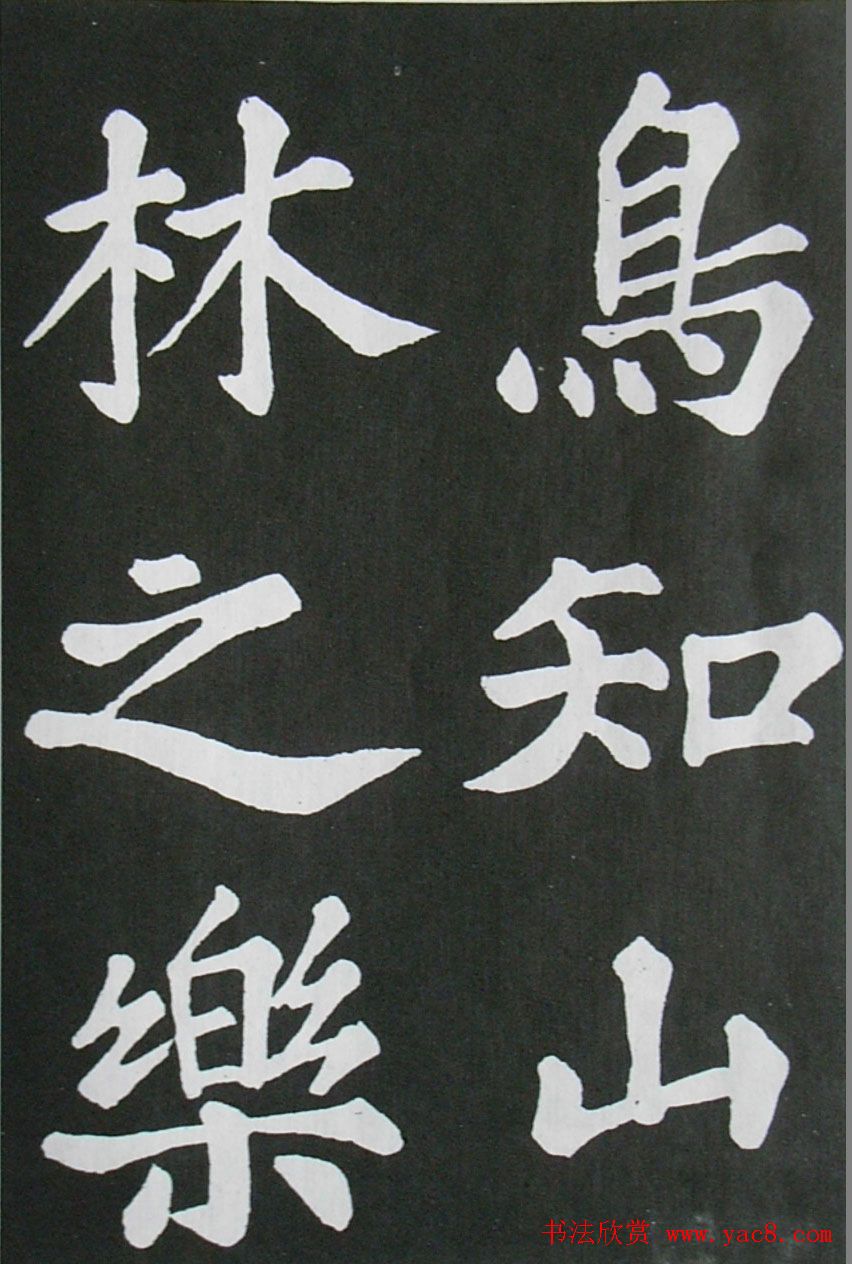 鳥知山
林之樂
书法欣赏 www.yac8.com